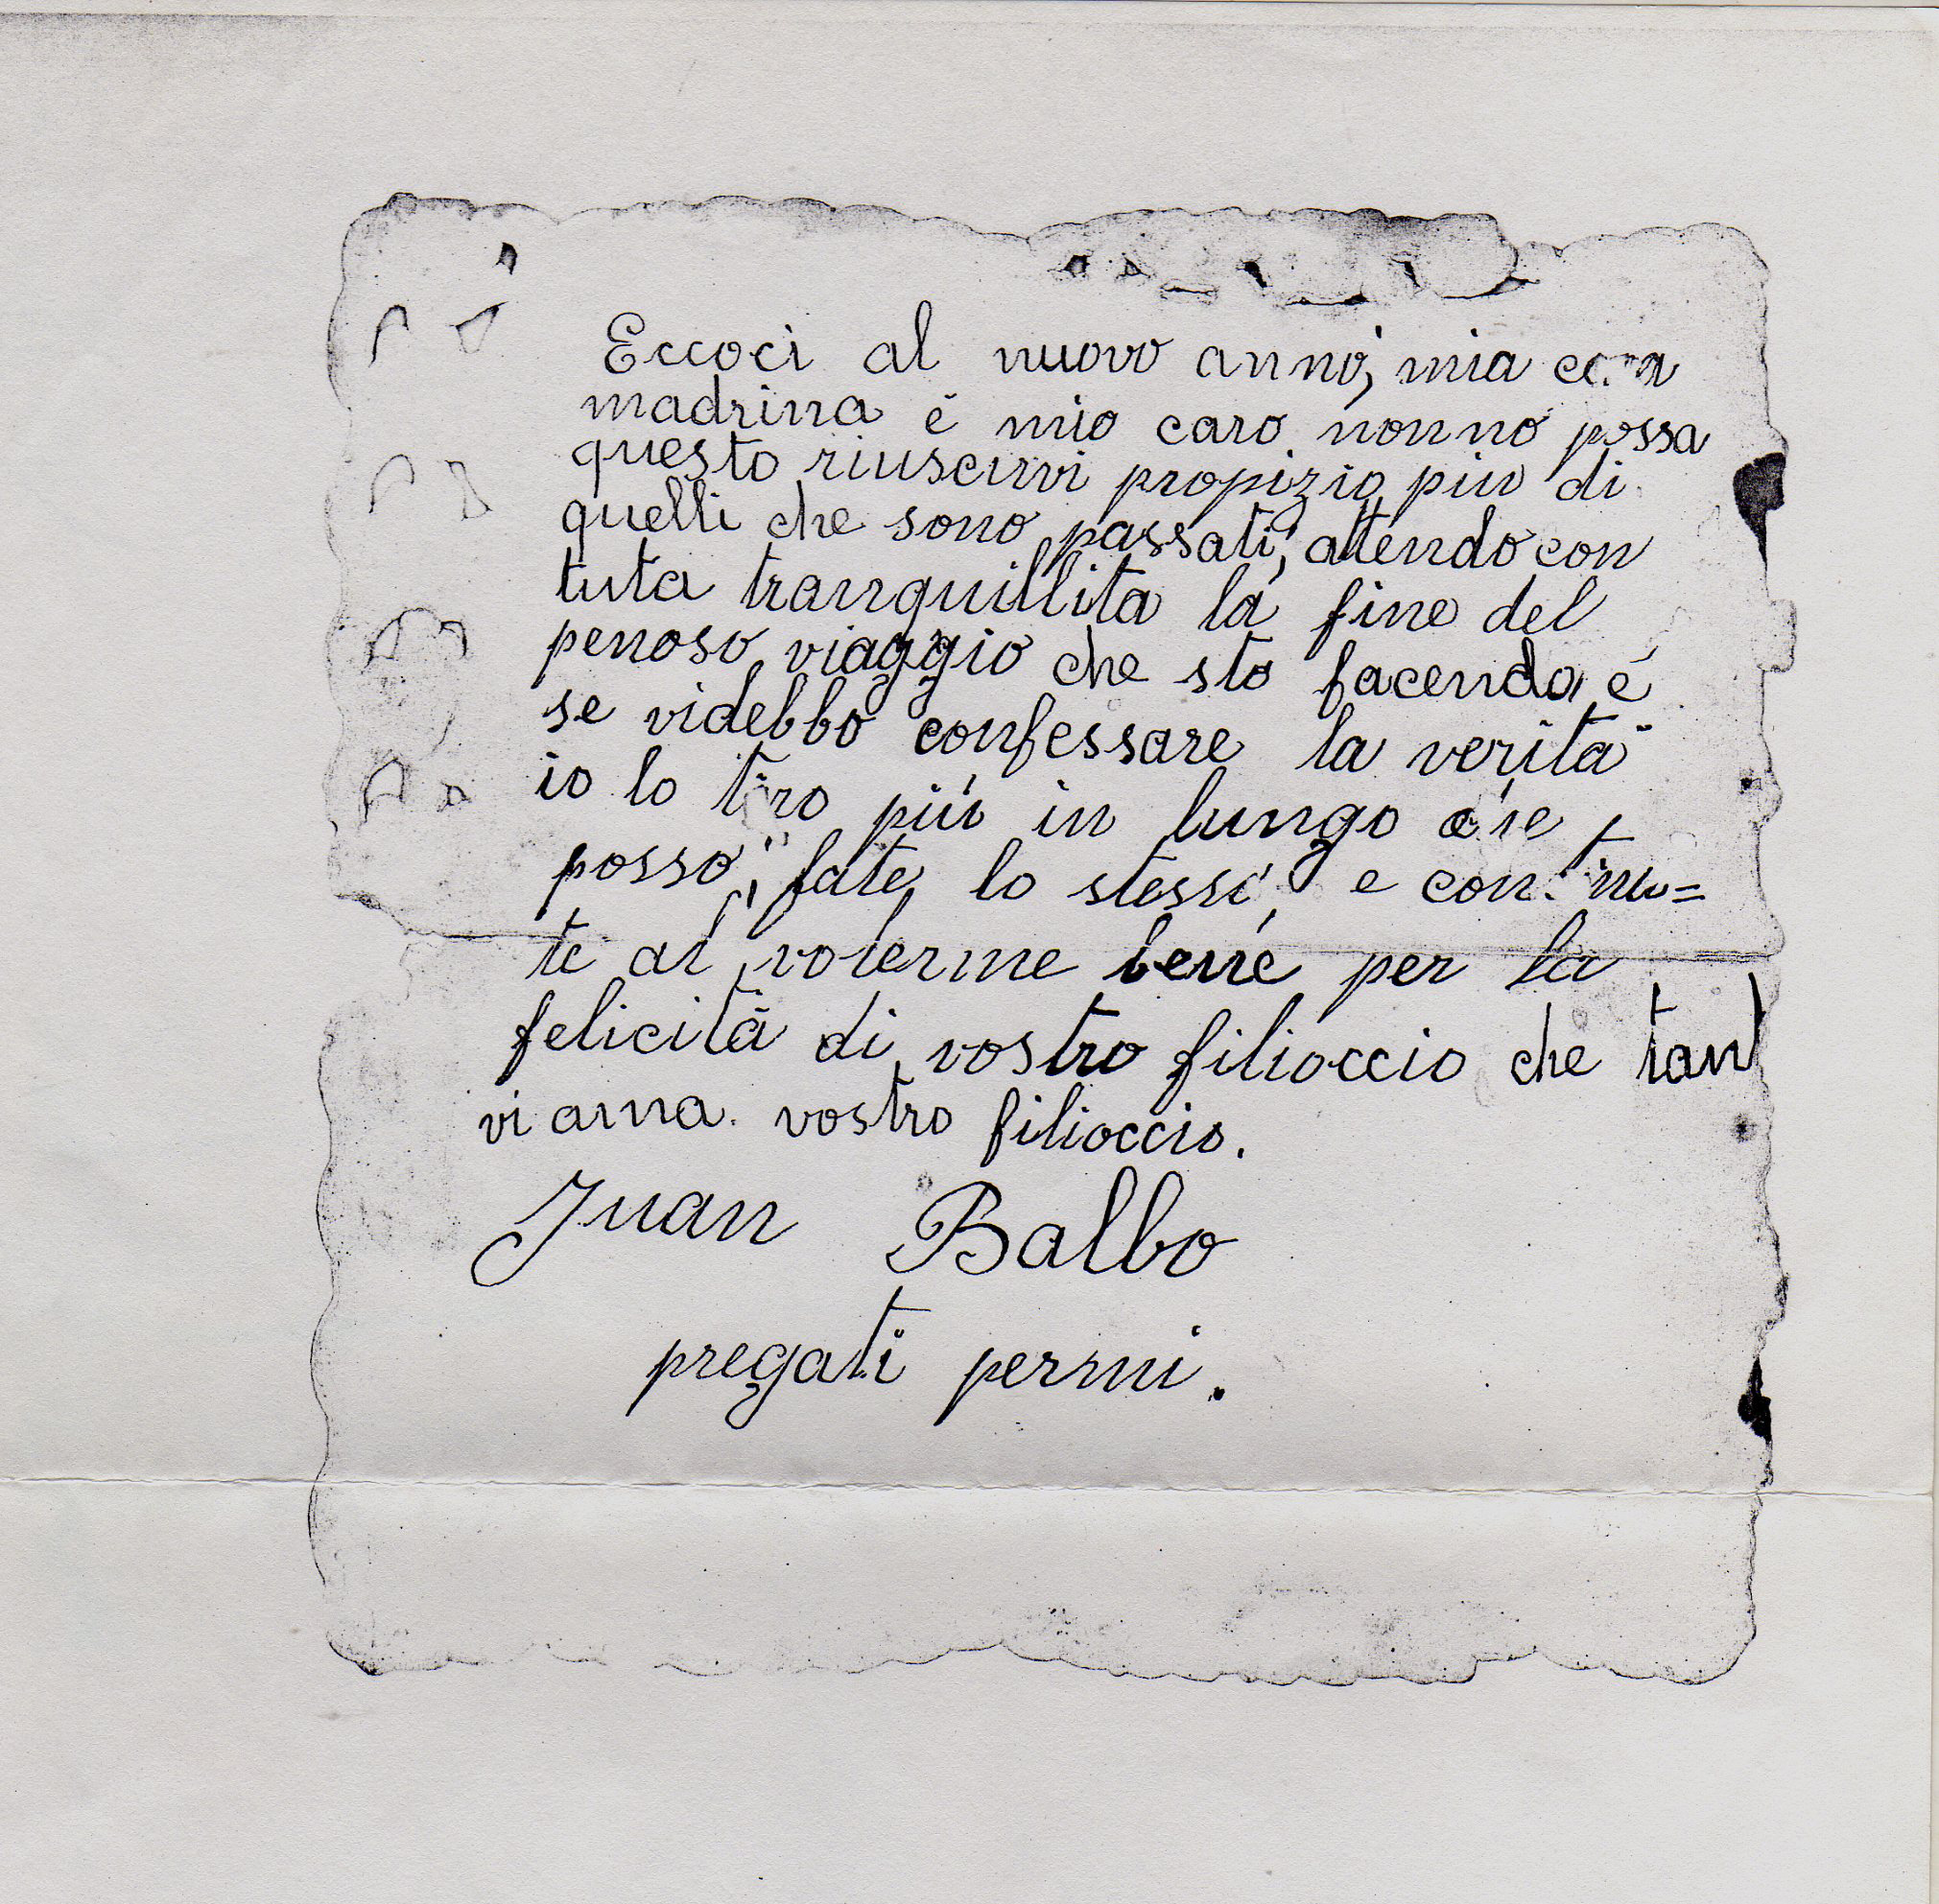 Eccoci al nuovo anno, mia cara
madrina é mio caro nonno possa
questo riuscirvi propizio più di
quelli che sono passati, attendo con
tuta tranquillita la fine del
penoso viaggio che sto facendo é
se videbbo confessare la verità
io lo tiro più in lungo che
posso, fate lo stessi, e continu=
te ai volerme bene per la
felicità di vostro filioccio che tan
vi ama. vostro filioccio.
Juan Balbo
pregati permi.